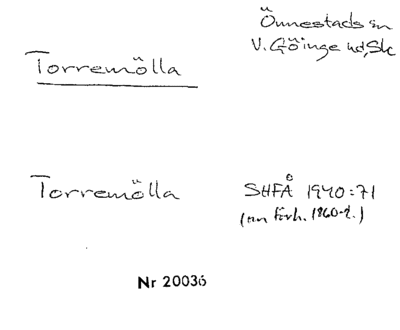 Önnestads sn
V. Göinge hd, Sk
Torremölla
Torremölla
SHFÅ 1940:71
(om förh. 1860-t.)
Nr 20036